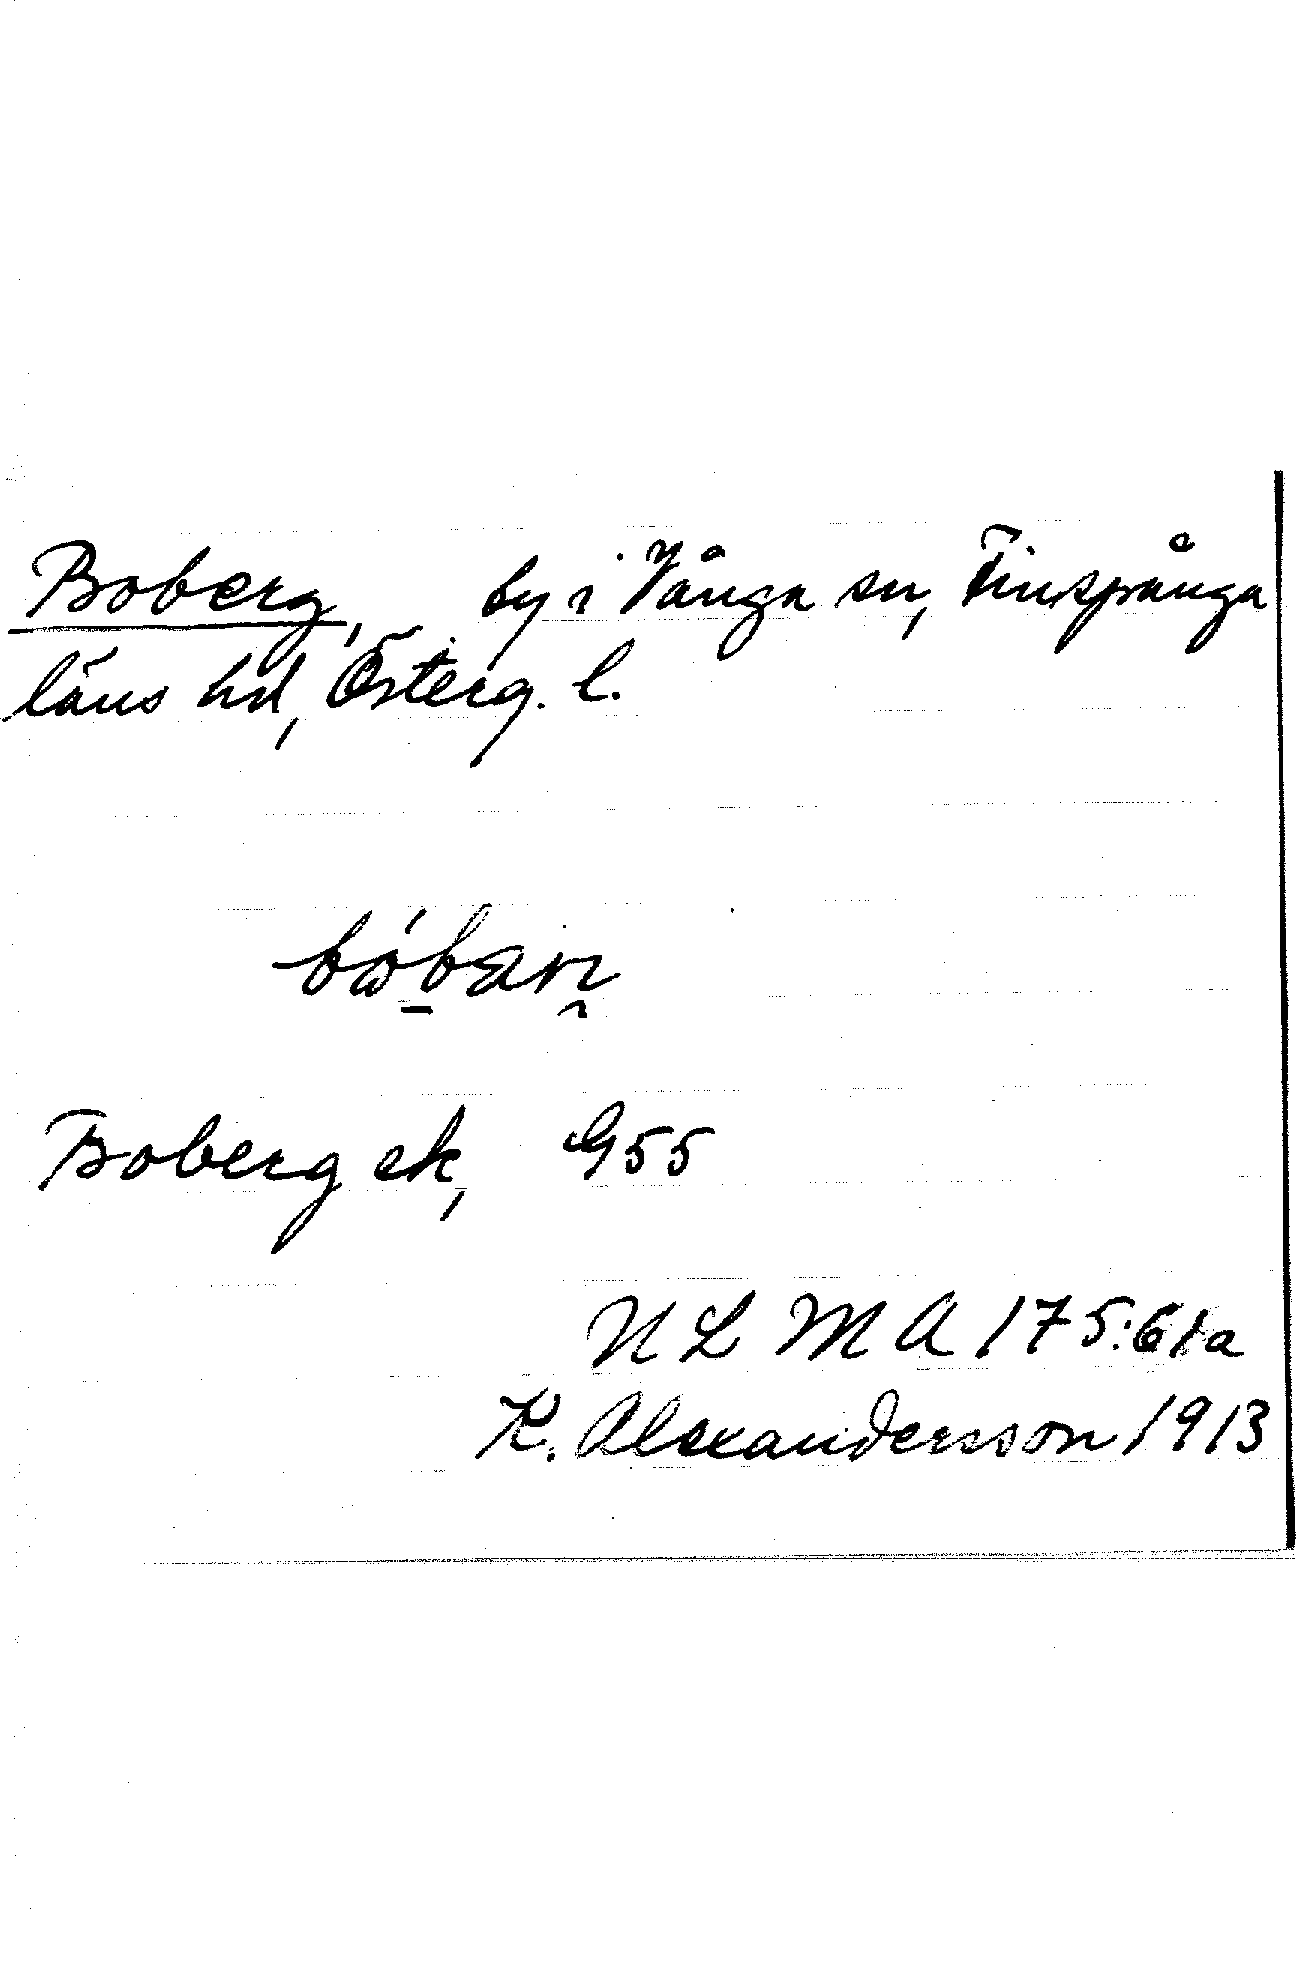 Boberg, by i Vånga sn, Finspånga
läns hd, Österg. l.
Boberg ek, G55
ULMA 175:61a
K. Alexandersson 1913